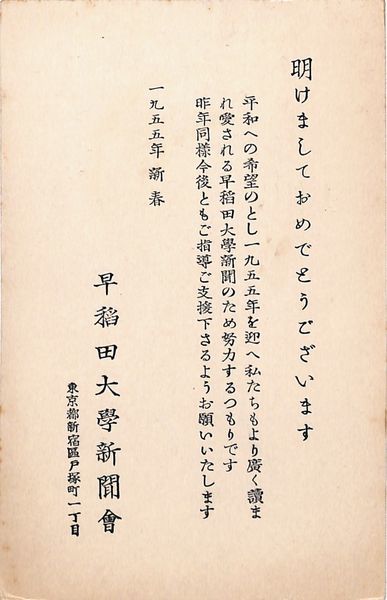 明けましておめでとうございます
平和への希望のとし一九五五年を迎へ私たちもより廣く讀ま
れ愛される早稲田大學新聞のため努力するつもりです
昨年同様今後ともご指導ご支援下さるようお願いいたします
一九五五年 新春
早稲田大學新聞會
東京都新宿區戸塚町一丁目